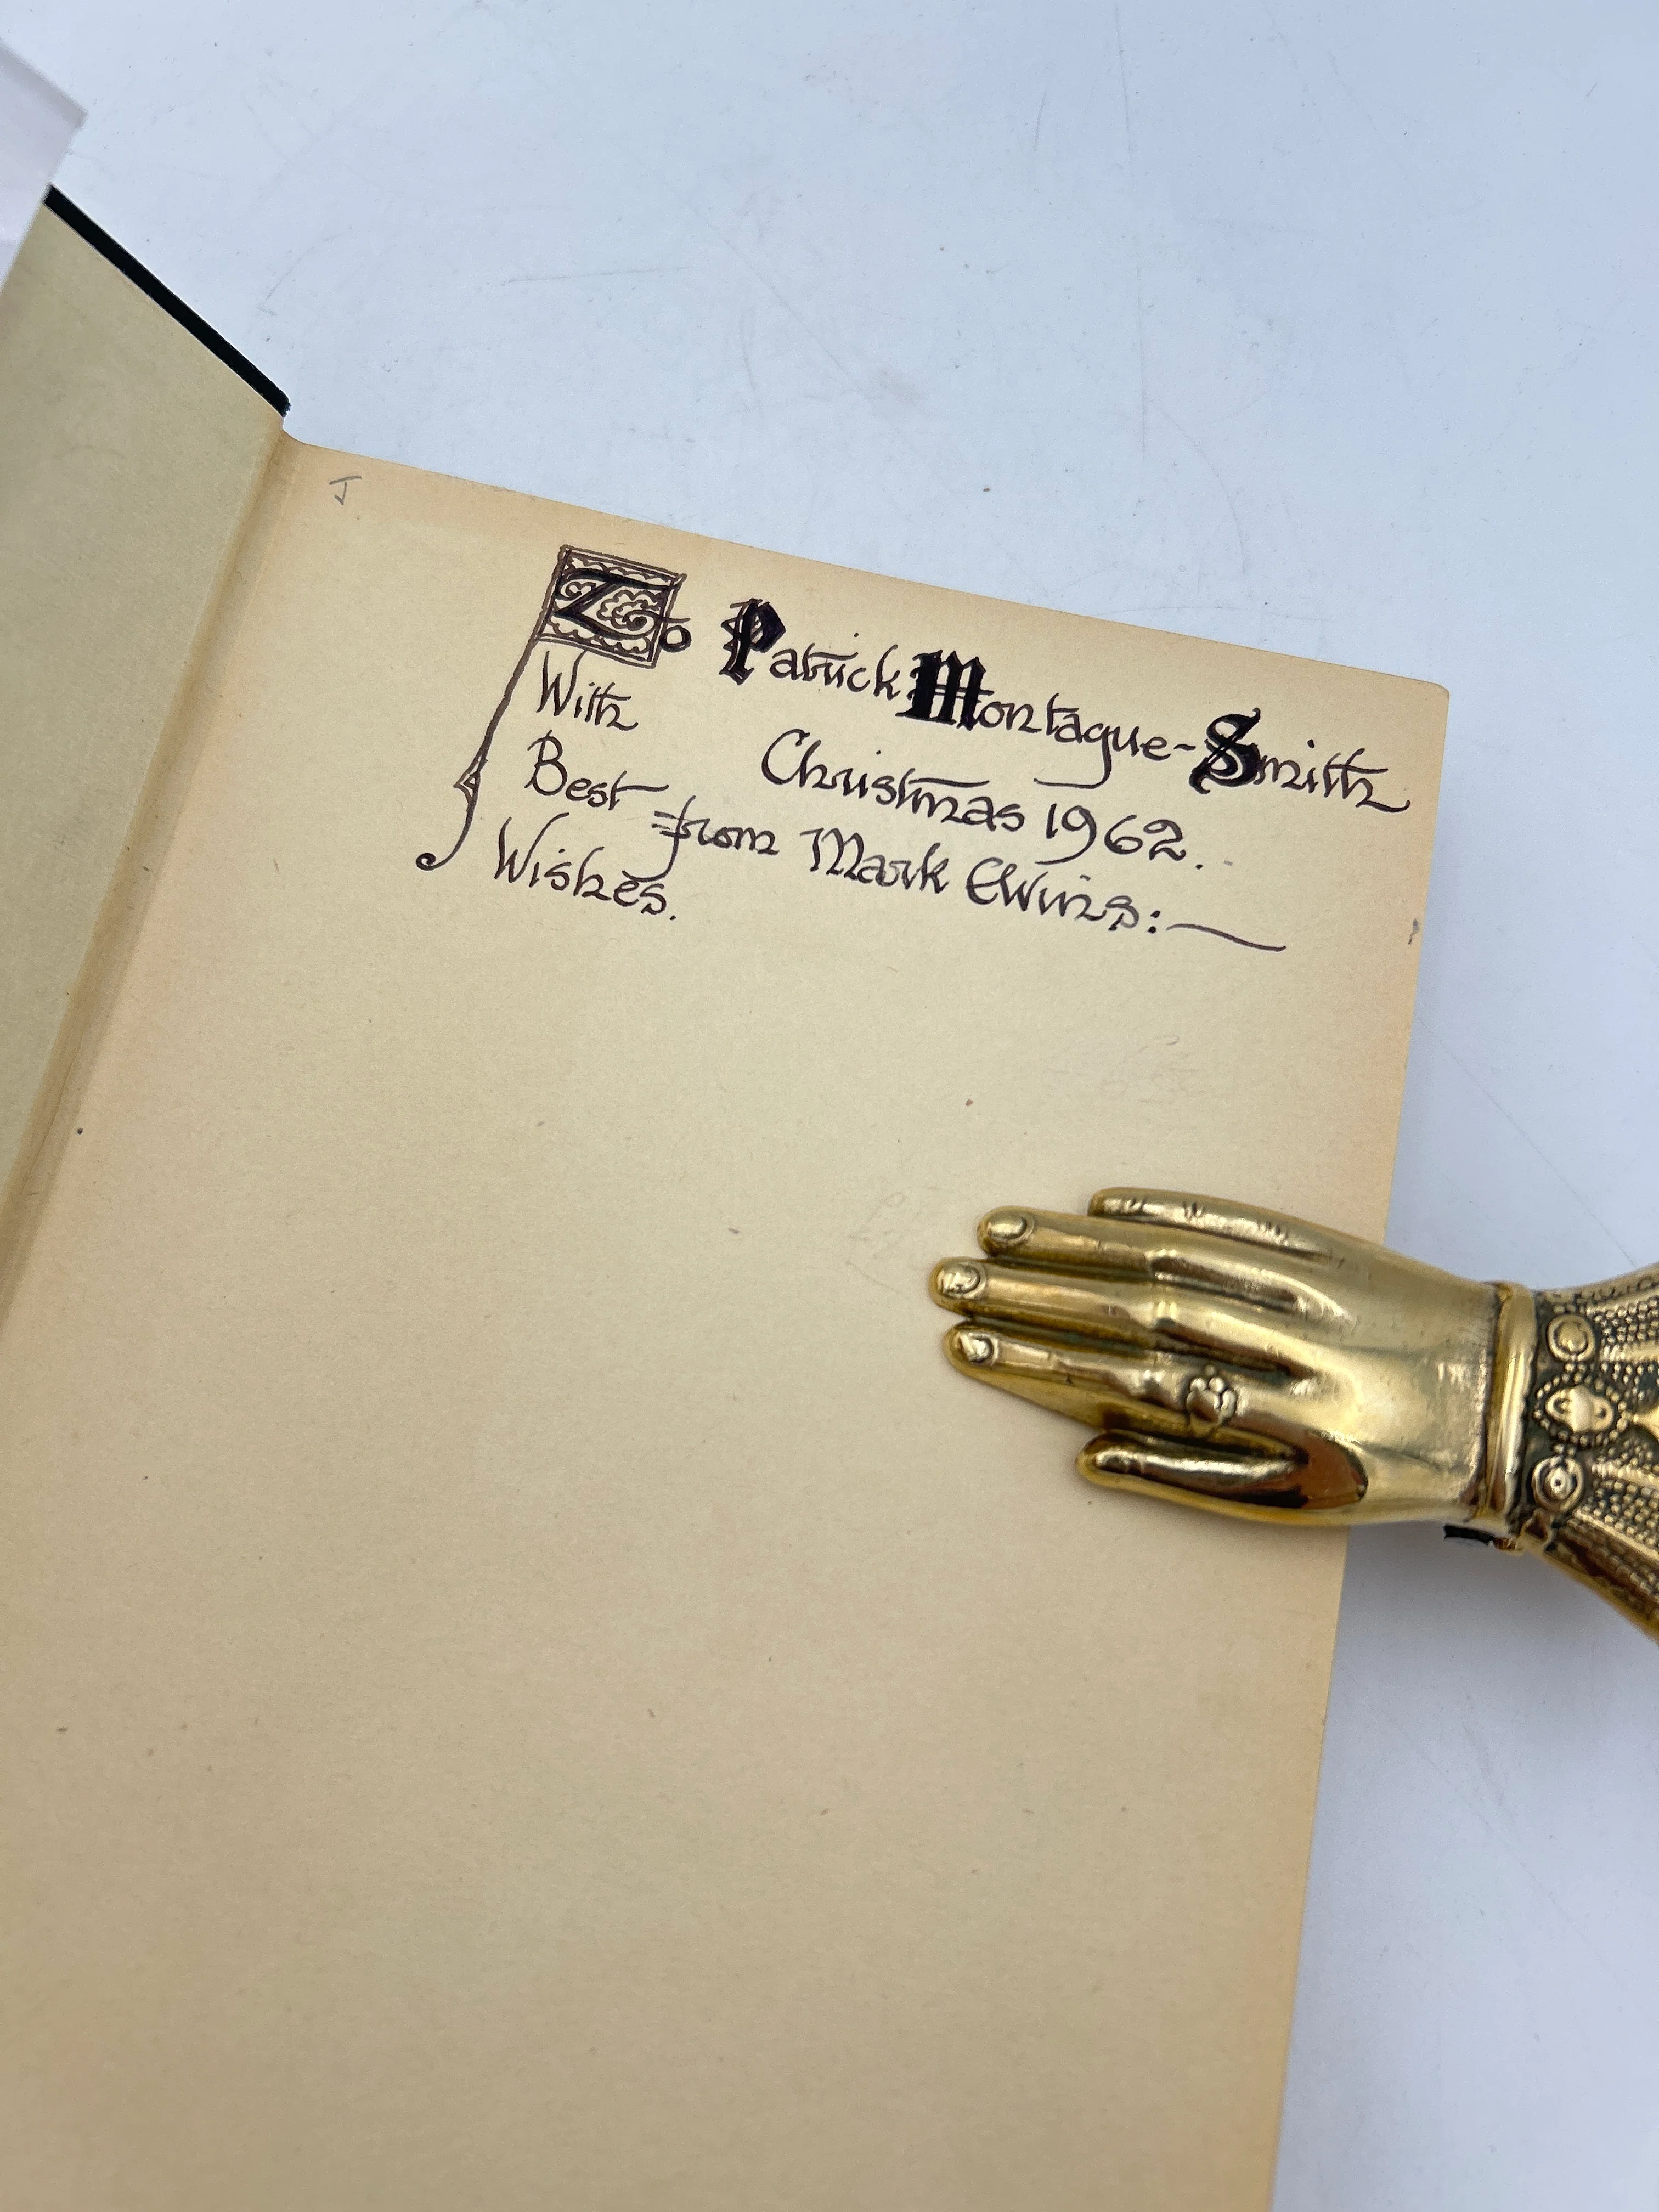 J
To Patrick Montague-Smith
With
Christmas 1962.
Best
from Mark Elvins:—
Wishes.